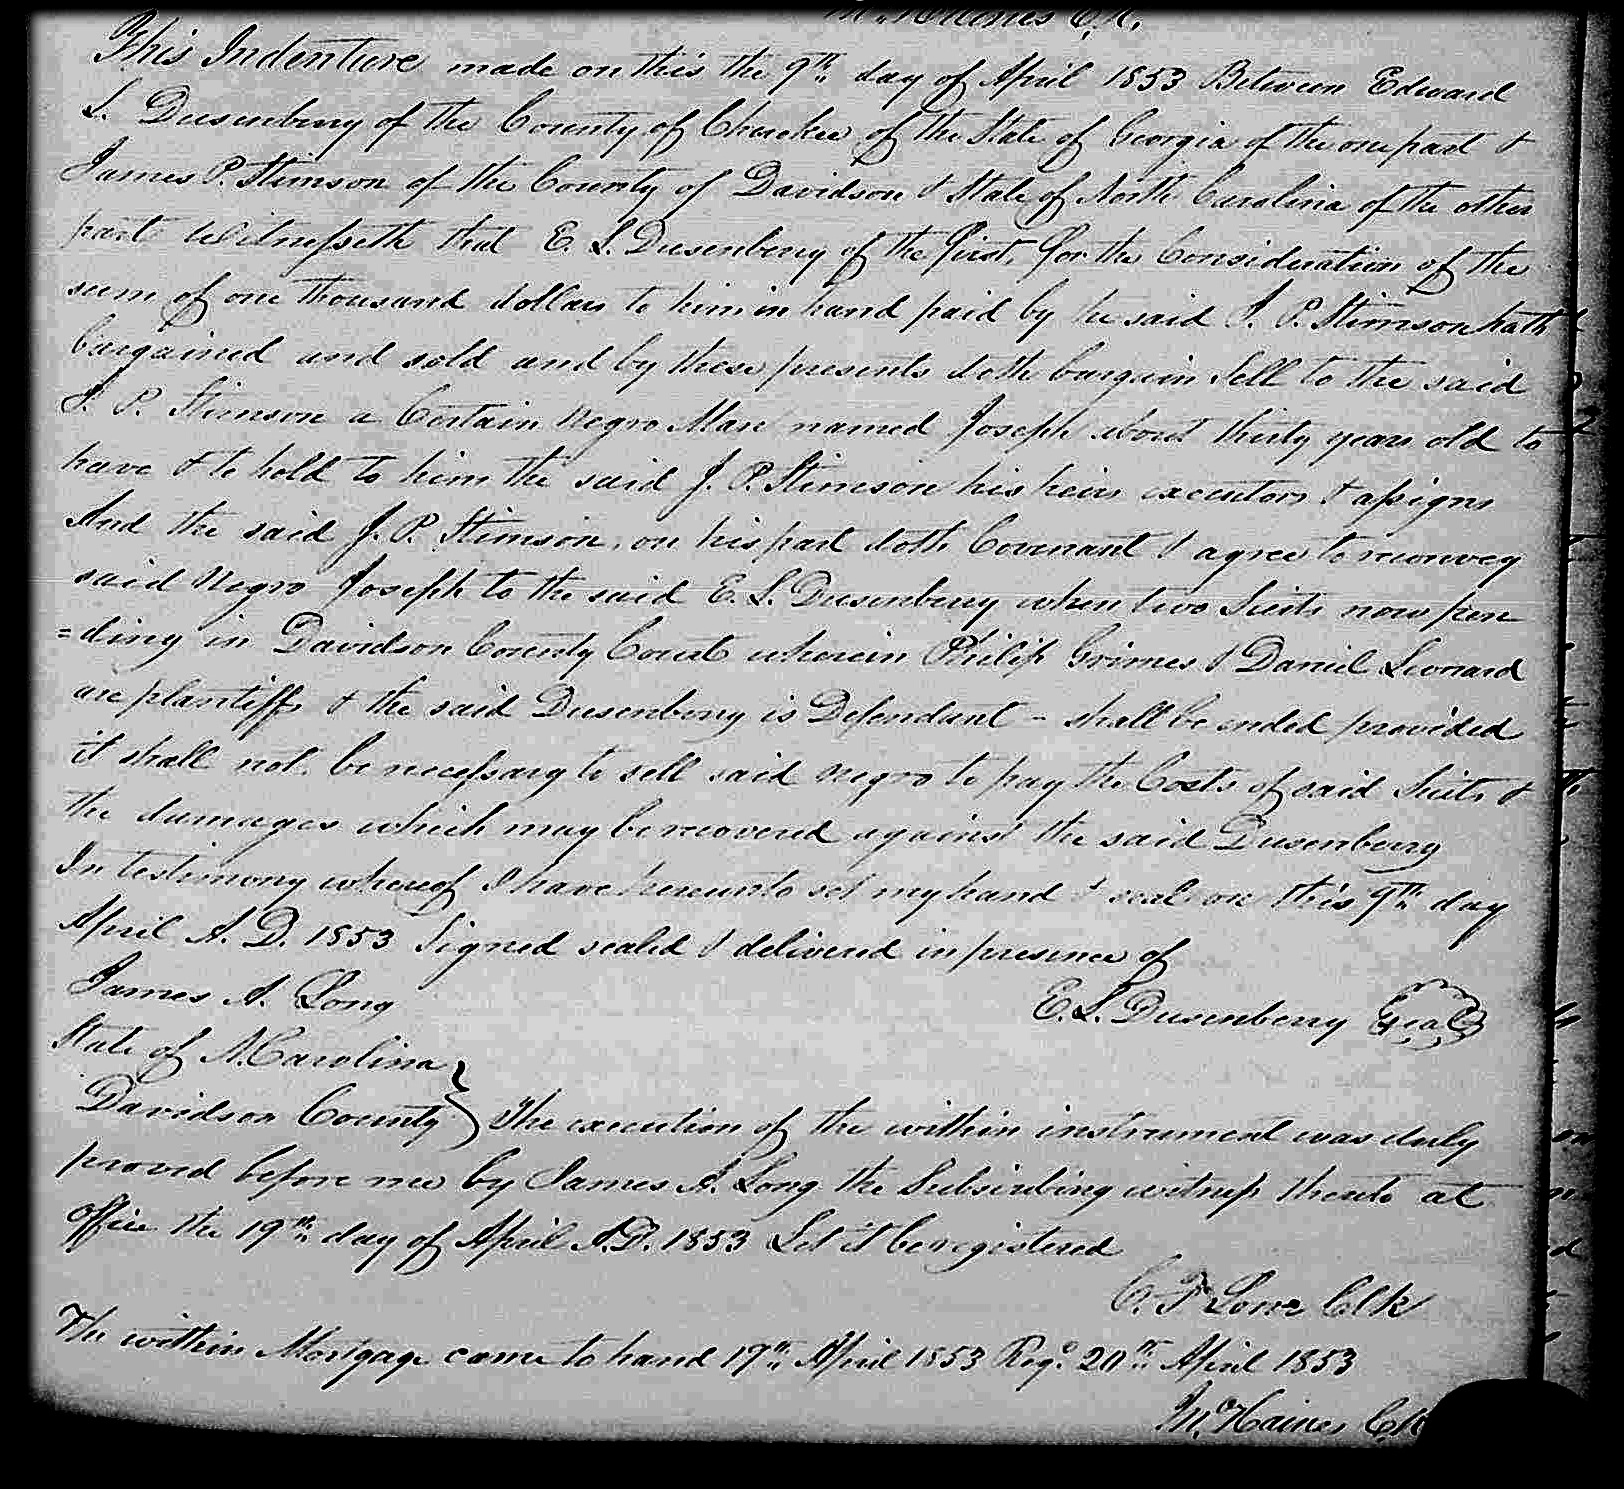 This Indenture made on this the 9th day of April 1853 Between Edward
S. Dusenberry of the County of Cherokee of the State of Georgia of the one part &
James P. Stimson of the County of Davidson & State of North Carolina of the other
part Witnesseth that E. S. Dusenberry of the first, for the Consideration of the
sum of one thousand dollars to him in hand paid by he said J. P. Stimson hath
bargained and sold and by these presents doth bargain Sell to the said
J. P. Stimson a Certain Negro Man named Joseph about thirty years old to
have & to hold to him the said J. P. Stimson his heirs executors & assigns
And the said J. P. Stimson, on his part doth Covenant & agree to reconvey
said Negro Joseph to the said E. S. Dusenberry when two Suits now pen
=ding in Davidson County Court wherein Philip Grimes & Daniel Leonard
are plantiffs & the said Dusenberry is Defendant - shall be ended provided
it shall not be necessary to sell said negro to pay the Costs of said Suits &
the damages which may be recovered against the said Dusenberry
In testimony whereof I have hereunto set my hand & seal on this 9th day
April A. D. 1853 Signed sealed & delivered in presence of
James A. Long E. S. Dusenberry Seal
State of N. Carolina
Davidson County } The execution of the within instrument was duly
proved before me by James A. Long the Subscribing witness thereto at
office the 19th day of April A.D. 1853 Let it be registered
C. F. Lowe Clk
The within Mortgage came to hand 19th April 1853 Regd 20th April 1853
M. Haines